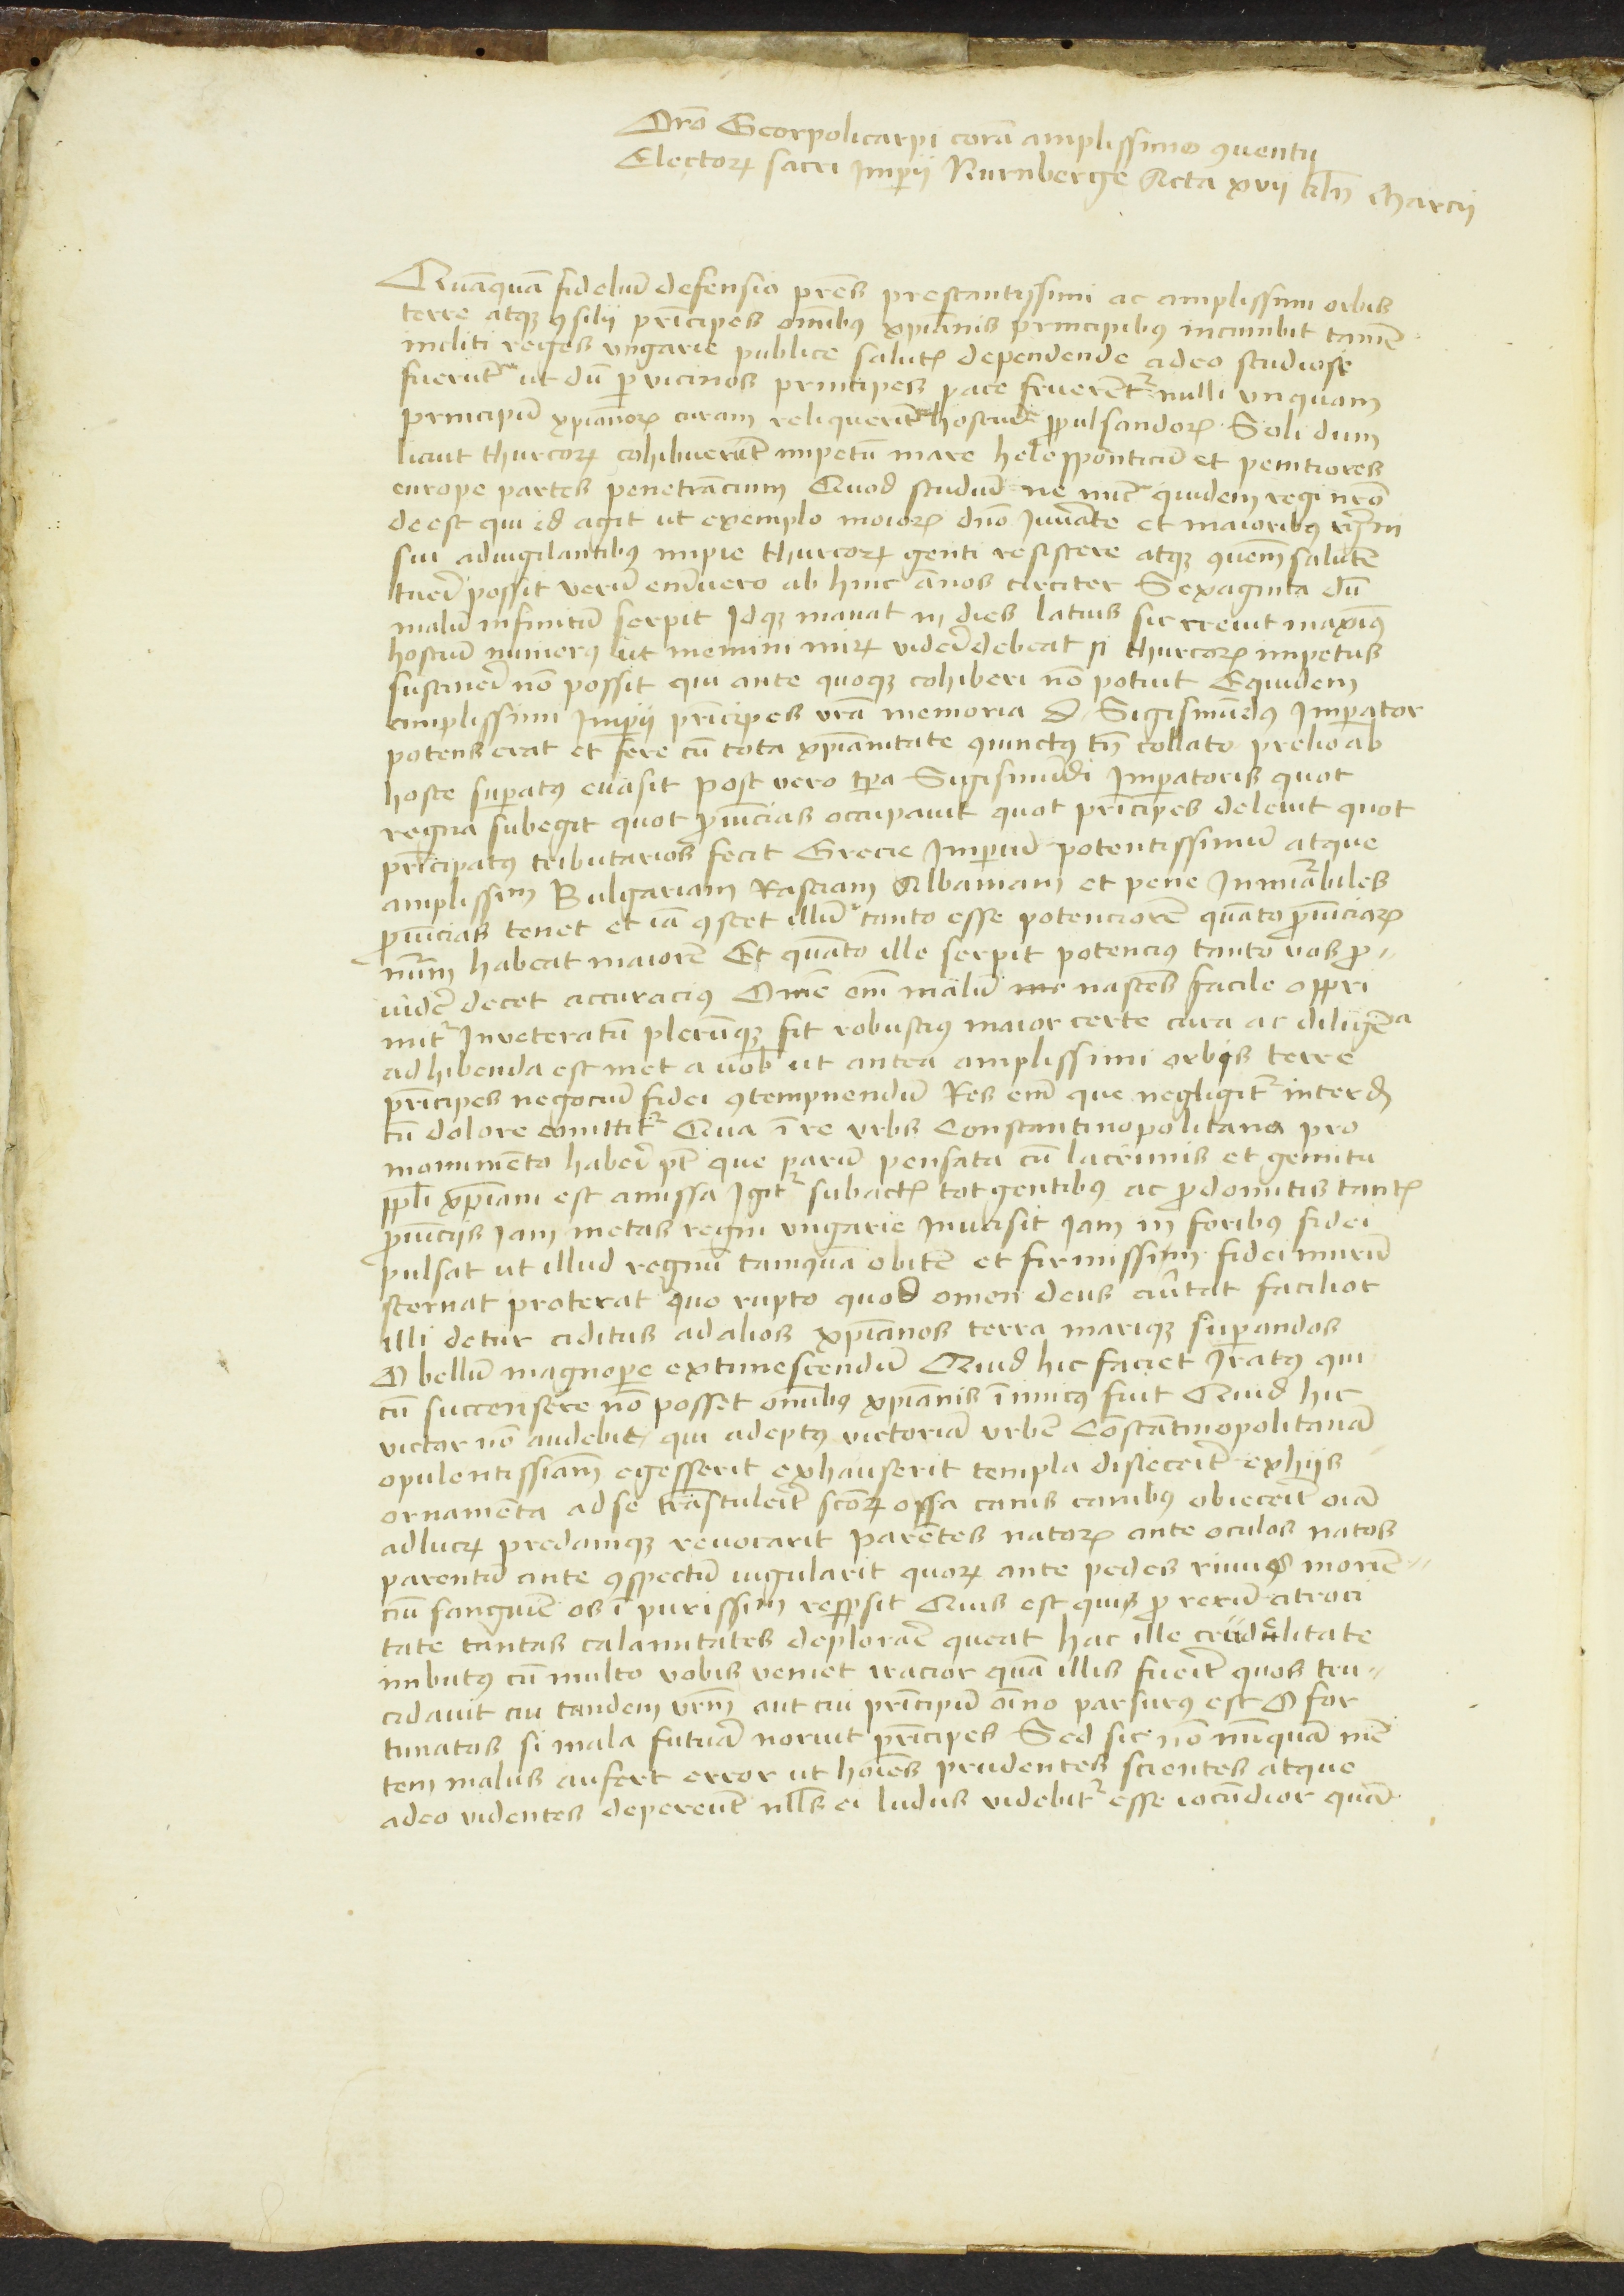 Oro Georpolicarpi corā amplissimo ꝯuentu
Electoꝝ sacri Imꝑij Nurnberge Acta xvij kl̄n Marcij
Quāquā fideliū defensio p̄res prestantissimi ac amplissimi orbis
terre atqꝫ ꝯsilij prīcipes om̄ibꝰ xp̄ianis principibꝰ incumbit tamē
incliti reges vngarie publice salutꝭ dependende adeo studiose
fuerūt ut dū ꝑ vicinos principes pace fruerēt᷑ nulli vnquam
principiū xp̄ianoꝝ curam reliquerīt hostiū ꝓpulsandoꝝ Soli dum
licuit thurcoꝝ cohibuerūt impetū mare helespontiacū et penitiores
europe partes penetrācium Quod studiū ne nūc quidem regi nr̄o
deest qui id agit ut exemplo maioꝝ dn̄o Iuuāte et maioribꝰ regni
sui aduigilantibꝰ impie thurcoꝝ genti resistere atqꝫ ꝯmūem salutē
tueri possit verū enīuero ab hinc ānos circiter Sexaginta dū
malū infinitū serpit Idqꝫ manat in dies latius sic creuit maximꝰ
hostiū numerꝰ ut nemini mirꝝ videri debeat si thurcoꝝ impetus
sustineri nō possit qui ante quoqꝫ cohiberi nō potuit Equidem
amplissimi Imꝑij prīcipes vrā memoria d. Sigismūdꝰ Imꝑator
potens erat et fere cū tota xp̄ianitate ꝯiunctꝰ tn̄ collato prelio ab
hoste suꝑatꝰ euasit post vero tp̄a Sigismūdi Imꝑatoris quot
regna subegit quot ꝓuīcias occupauit quot prīcipes deleuit quot
prīcipatꝰ tributarios fecit Grecie Imꝑiū potentissimū atque
amplissim̄ Bulgariam Rasciam Albaniam et pene Innūabiles
ꝓuīcias tenet et iā ꝯstet illū tanto esse potenciorē quāto ꝓuīciaꝝ
nūm habeat maiorē Et quāto ille serpit potencius tanto vos ꝓ-
uidē decet accuracius Omē em̄ malū nascēs facile oppri
mit᷑ Inueteratū plerūqꝫ fit robustiꝰ maior certe cura ac diligēa
adhibenda est nec a vob̄ ut antea amplissimi orbis terre
prīcipes negociū fidei ꝯtempnendū Res em̄ que negligit᷑ interd̄
cū dolore comittit᷑ Qua ī re vrbs Constantinopolitana pro
monumēto haberi pt̄ que parū pensata cū lacrimis et gemitu
ppl̄i xp̄iani est amissa Igit᷑ subactꝭ tot gentibꝰ ac ꝓdomitis tantꝭ
ꝓuīcijs Iam metas regni vngarie Inuasit Iam in foribꝰ fidei
pulsat ut illud regnū tamquā obicē et firmissim̄ fidei murū
sternat proterat quo rupto quod omen deus auertat facilior
illi detur aditus ad alios xp̄ianos terra mariqꝫ suꝑandos
O bellū magnoꝑe extimescendū Quid hic faciet Iratꝰ qui
cū succensere nō posset om̄ibꝰ xp̄ianis īimicus fuit Quid hic
victor nō audebit qui adeptꝰ victoriā vrbē Cōstātinopolitanā
opulentissimā egesserit exhauserit templa disiecerit ex hijs
ornamēta ad se trāstulerit sc̄oꝝ ossa canis canibꝰ obiecerit oīa
ad lucꝝ predamqꝫ reuocarit parētes natoꝝ ante oculos natos
parentū ante ꝯspectū iugularit quoꝝ ante pedes riuus moriē-
ciū sanguīe os īpurissim̄ respsit Quis est quis ꝓ rerū atroci
tate tantas calamitates deplorare queat hac ille crudelitate
imbutꝰ cū multo vobis veniet iracior quā illis fuerit quos tru-
cidauit cui tandem vrm̄ aut cui prīcipū oīno parsurꝰ est O for
tunatos si mala futurā norunt prīcipes Sed sic nō nūquā mē
tem malus aufert error ut hoīes prudentes scientes atque
adeo videntes depereūt nll̄s ei ludus videbit᷑ esse iocūdior quā